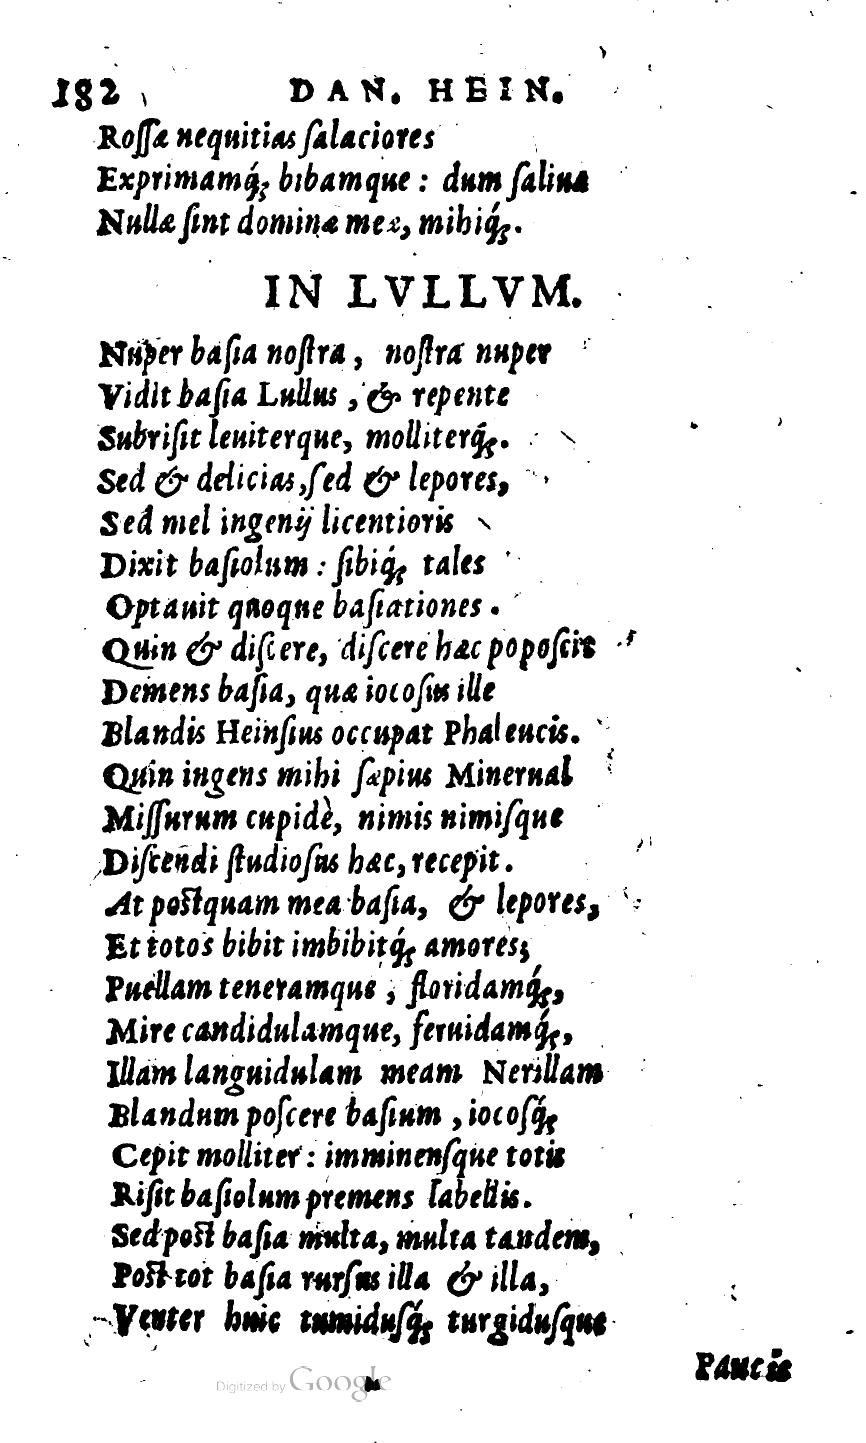 182 DAN. HEIN.
Roſſæ nequitias ſalaciores
Exprimamq́; bibamque : dum ſaliua
Nullæ ſint dominæ meæ, mihiq́;.
IN LVLLVM.
Nuper baſia noſtra, noſtra nuper
Vidit baſia Lullus, & repente
Subriſit leuiterque, molliterq́;.
Sed & delicias, ſed & lepores,
Sed mel ingenij licentioris
Dixit baſiolum : ſibiq́; tales
Optauit quoque baſiationes.
Quin & diſcere, diſcere hæc popoſcit
Demens baſia, quæ iocoſus ille
Blandis Heinſius occupat Phaleucis.
Quin ingens mihi ſæpius Minerual
Miſſurum cupidè, nimis nimiſque
Diſcendi ſtudioſus hæc, recepit.
At poſtquam mea baſia, & lepores,
Et totos bibit imbibitq́; amores;
Puellam teneramque, floridamq́;,
Mire candidulamque, feruidamq́;,
Illam languidulam meam Nerillam
Blandum poſcere baſium, iocoſq́;
Cepit molliter : imminenſque totis
Riſit baſiolum premens labellis.
Sed poſt baſia multa, multa tandem,
Poſt tot baſia rurſus illa & illa,
Venter huic tumiduſq́; turgiduſque
Paucis
Digitized by Google